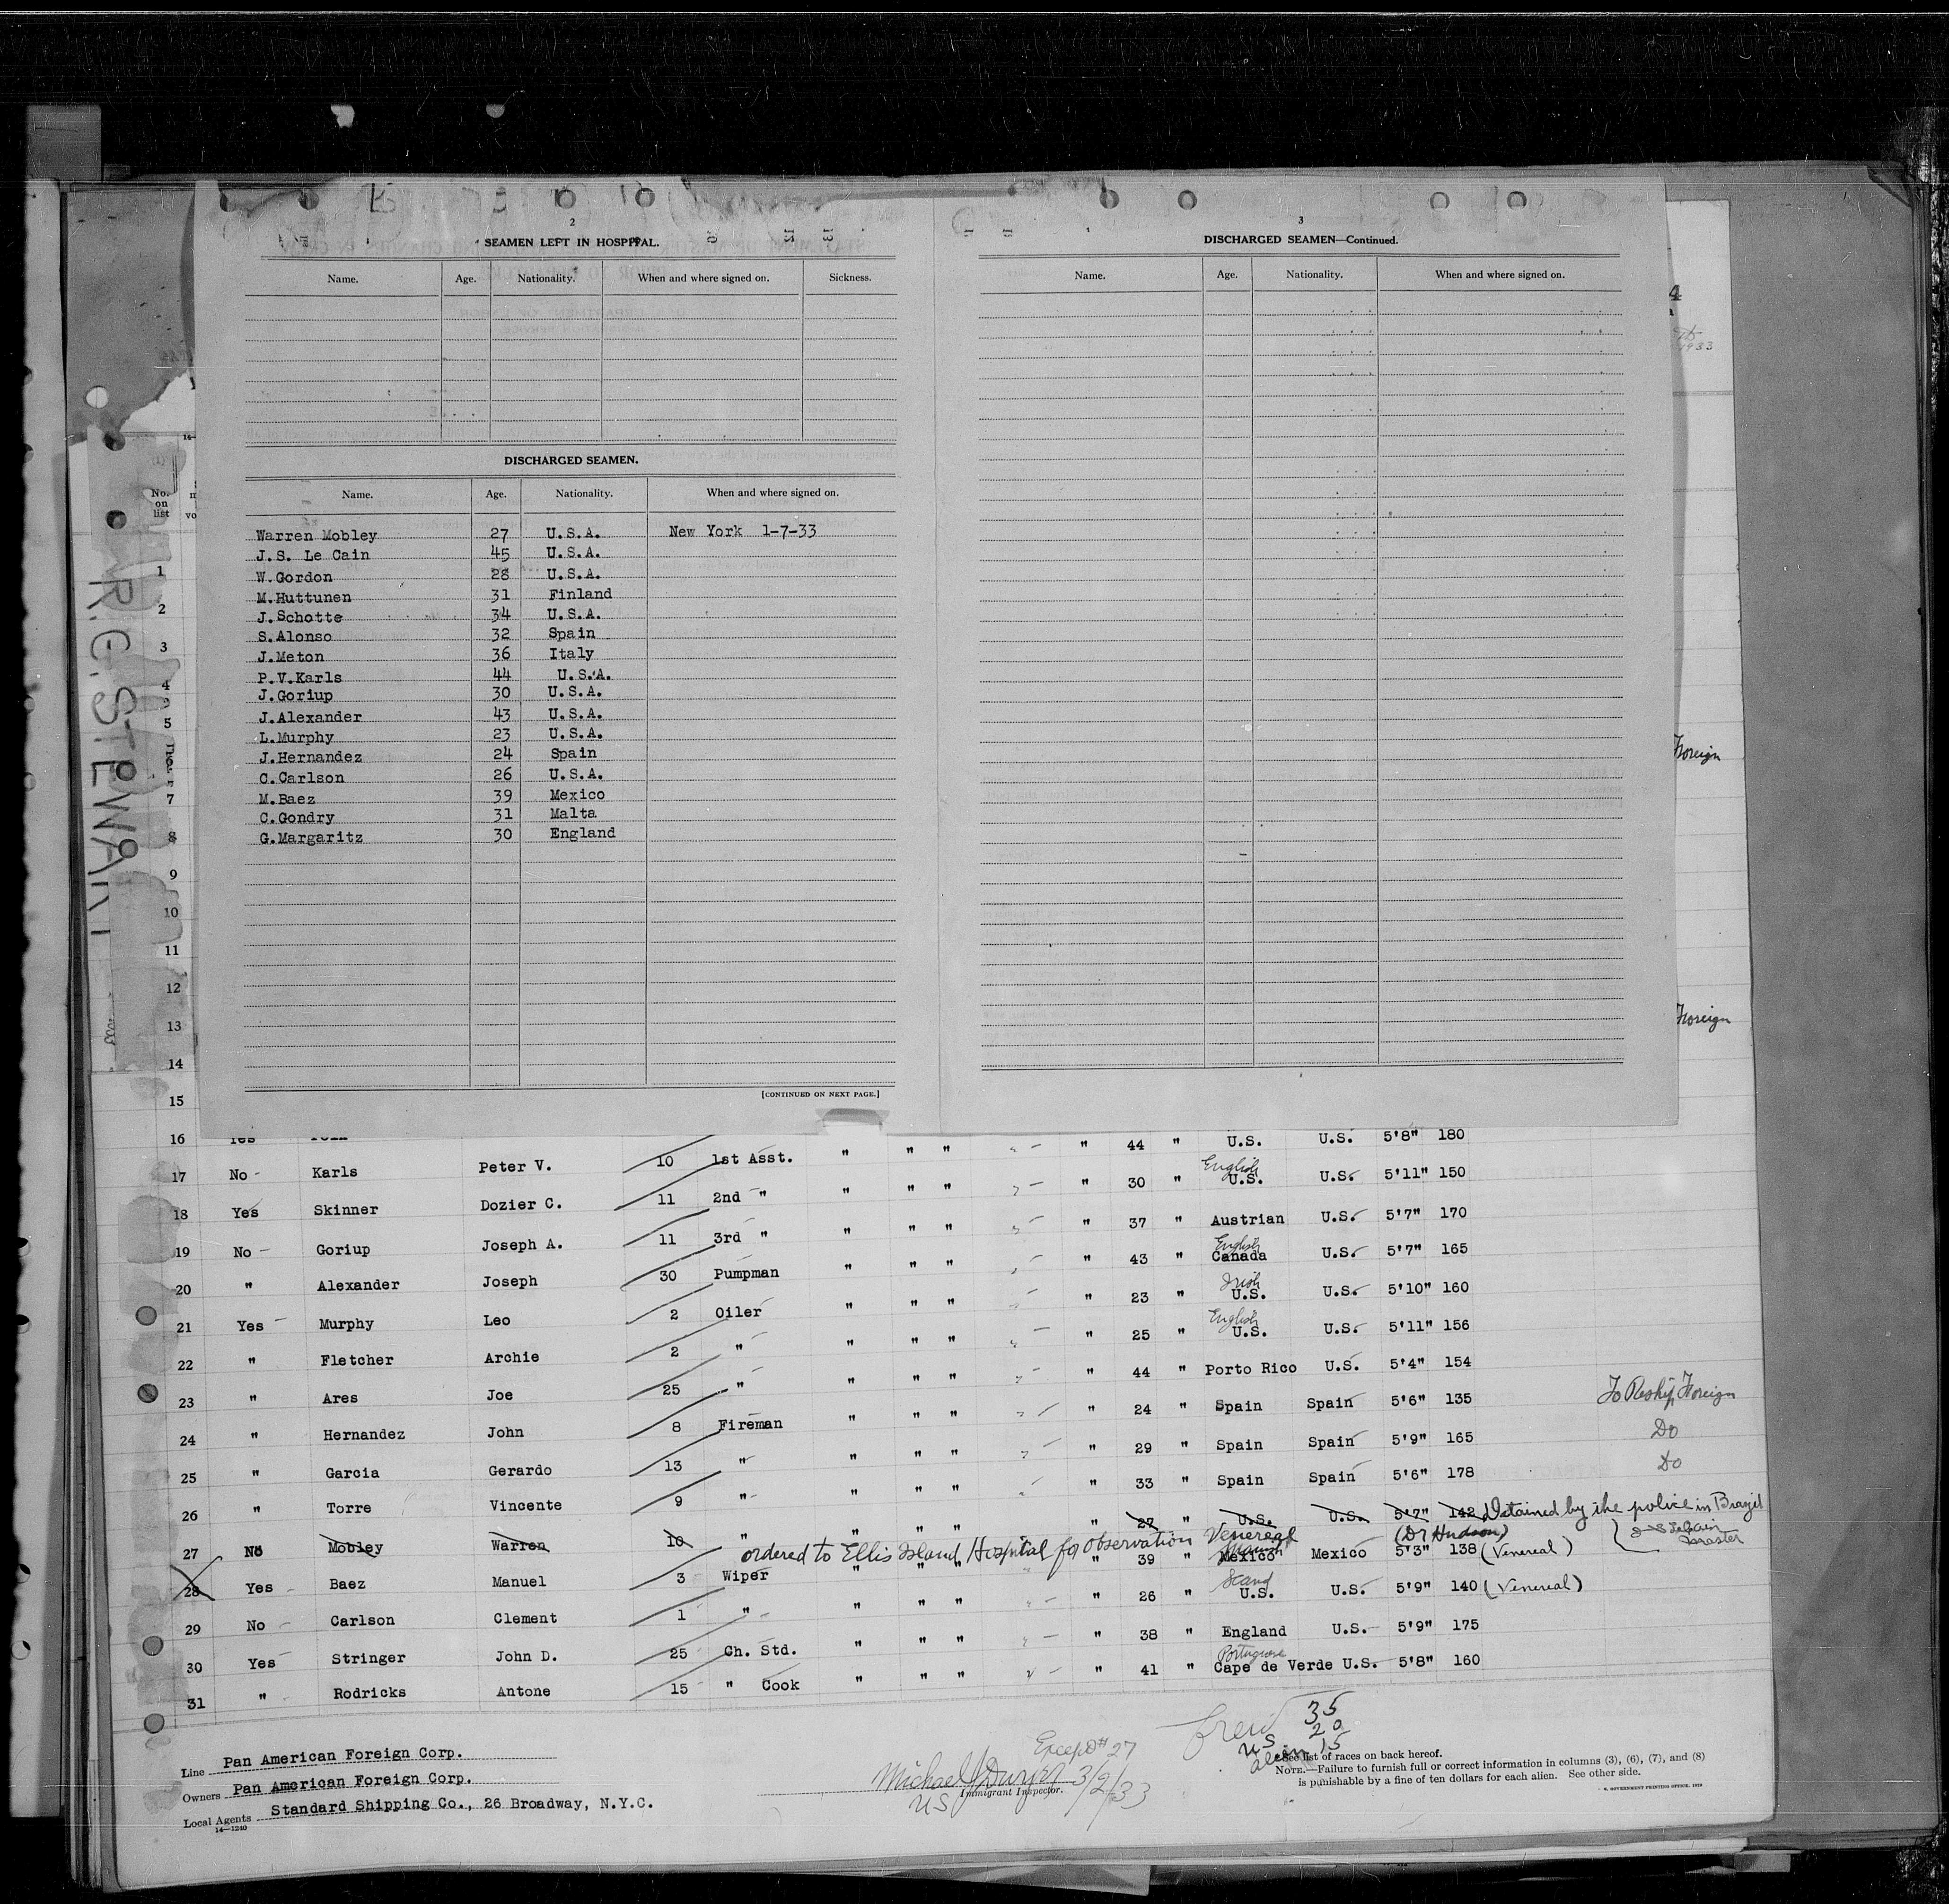 2
SEAMEN LEFT IN HOSPITAL.
Name. Age. Nationality. When and where signed on. Sickness.
DISCHARGED SEAMEN.
Name. Age. Nationality. When and where signed on.
Warren Mobley 27 U.S.A. New York 1-7-33
J.S. Le Cain 45 U.S.A.
W.Gordon 28 U.S.A.
M.Huttunen 31 Finland
J.Schotte 34 U.S.A.
S.Alonso 32 Spain
J.Meton 36 Italy
P.V.Karls 44 U.S.A.
J.Goriup 30 U.S.A.
J.Alexander 43 U.S.A.
L.Murphy 23 U.S.A.
J.Hernandez 24 Spain
C.Carlson 26 U.S.A.
M.Baez 39 Mexico
C.Gondry 31 Malta
G.Margaritz 30 England
[CONTINUED ON NEXT PAGE.]
3
DISCHARGED SEAMEN—Continued.
Name. Age. Nationality. When and where signed on.
4
1933
Foreign
Foreign
R.G. STEWART
No. on list
1
2
3
4
5
7
8
9
10
11
12
13
14
15
16 Yes
" 44 " U.S. U.S. 5'8" 180
17 No - Karls Peter V. 10 1st Asst. " " " " 30 " English U.S. U.S. 5'11" 150
18 Yes Skinner Dozier C. 11 2nd " " " " " 37 " Austrian U.S. 5'7" 170
19 No - Goriup Joseph A. 11 3rd " " " " " 43 " English Canada U.S. 5'7" 165
20 " Alexander Joseph 30 Pumpman " " " " 23 " Irish U.S. U.S. 5'10" 160
21 Yes - Murphy Leo 2 Oiler " " " " 25 " English U.S. U.S. 5'11" 156
22 " Fletcher Archie 2 " " " " " 44 " Porto Rico U.S. 5'4" 154
23 " Ares Joe 25 " " " " " 24 " Spain Spain 5'6" 135 To Reship Foreign
24 " Hernandez John 8 Fireman " " " " 29 " Spain Spain 5'9" 165 Do
25 " Garcia Gerardo 13 " " " " " 33 " Spain Spain 5'6" 178 Do
26 " Torre Vincente 9 " " " " " 27 " U.S. U.S. 5'7" 142 Detained by the police in Brazil
27 No Mobley Warren 10 " " " "
ordered to Ellis Island Hospital for observation Venereal (Dr Hudson)
J S LeCain Master
" 39 " Mexico Mexico 5'3" 138 (Venereal)
28 Yes - Baez Manuel 3 Wiper " " " " 26 " Scand U.S. U.S. 5'9" 140 (Venereal)
29 No - Carlson Clement 1 " " " " " 38 " England U.S. 5'9" 175
30 Yes Stringer John D. 25 Ch. Std. " " " " 41 " Portuguese Cape de Verde U.S. 5'8" 160
31 " Rodricks Antone 15 " Cook " " "
Crew 35
US 20
alien 15
Except #27
Michael J Dwyer 3/2/33
US Immigrant Inspector.
Line Pan American Foreign Corp.
Owners Pan American Foreign Corp.
Local Agents Standard Shipping Co., 26 Broadway, N.Y.C.
14—1240
See list of races on back hereof.
NOTE.—Failure to furnish full or correct information in columns (3), (6), (7), and (8)
is punishable by a fine of ten dollars for each alien. See other side.
U. S. GOVERNMENT PRINTING OFFICE: 1929